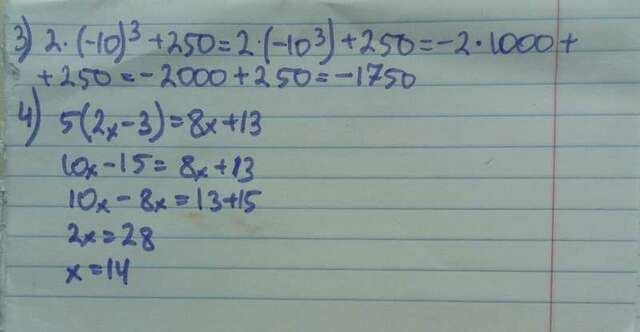 3) 2·(-10)³+250=2·(-10³)+250=-2·1000+
+250=-2000+250=-1750
4) 5(2x-3)=8x+13
10x-15=8x+13
10x-8x=13+15
2x=28
x=14